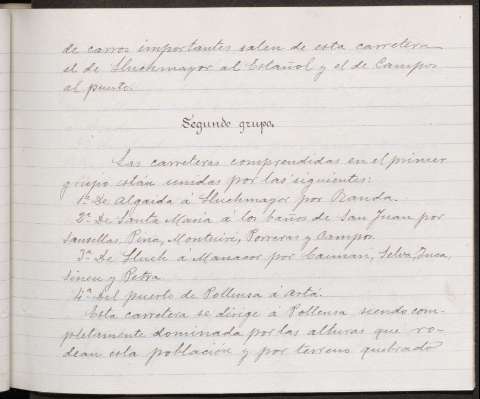 de carros importantes salen de esta carretera
el de Lluchmayor al Estañol y el de Campos
al puente.
Segundo grupo.
Las carreteras comprendidas en el primer
grupo están unidas por las siguientes:
1ª De Algaida á Lluchmayor por Randa.
2ª De Santa Maria á los baños de San Juan por
Sansellas, Pina, Montuiri, Porreras y Campos.
3ª De Lluch a Manacor por Caimari, Selva, Inca,
Sineu y Petra.
4ª Del puerto de Pollensa á Artá.
Esta carretera se dirige á Pollensa siendo com-
pletamente dominada por las alturas que ro-
dean esta población y por terreno quebrado